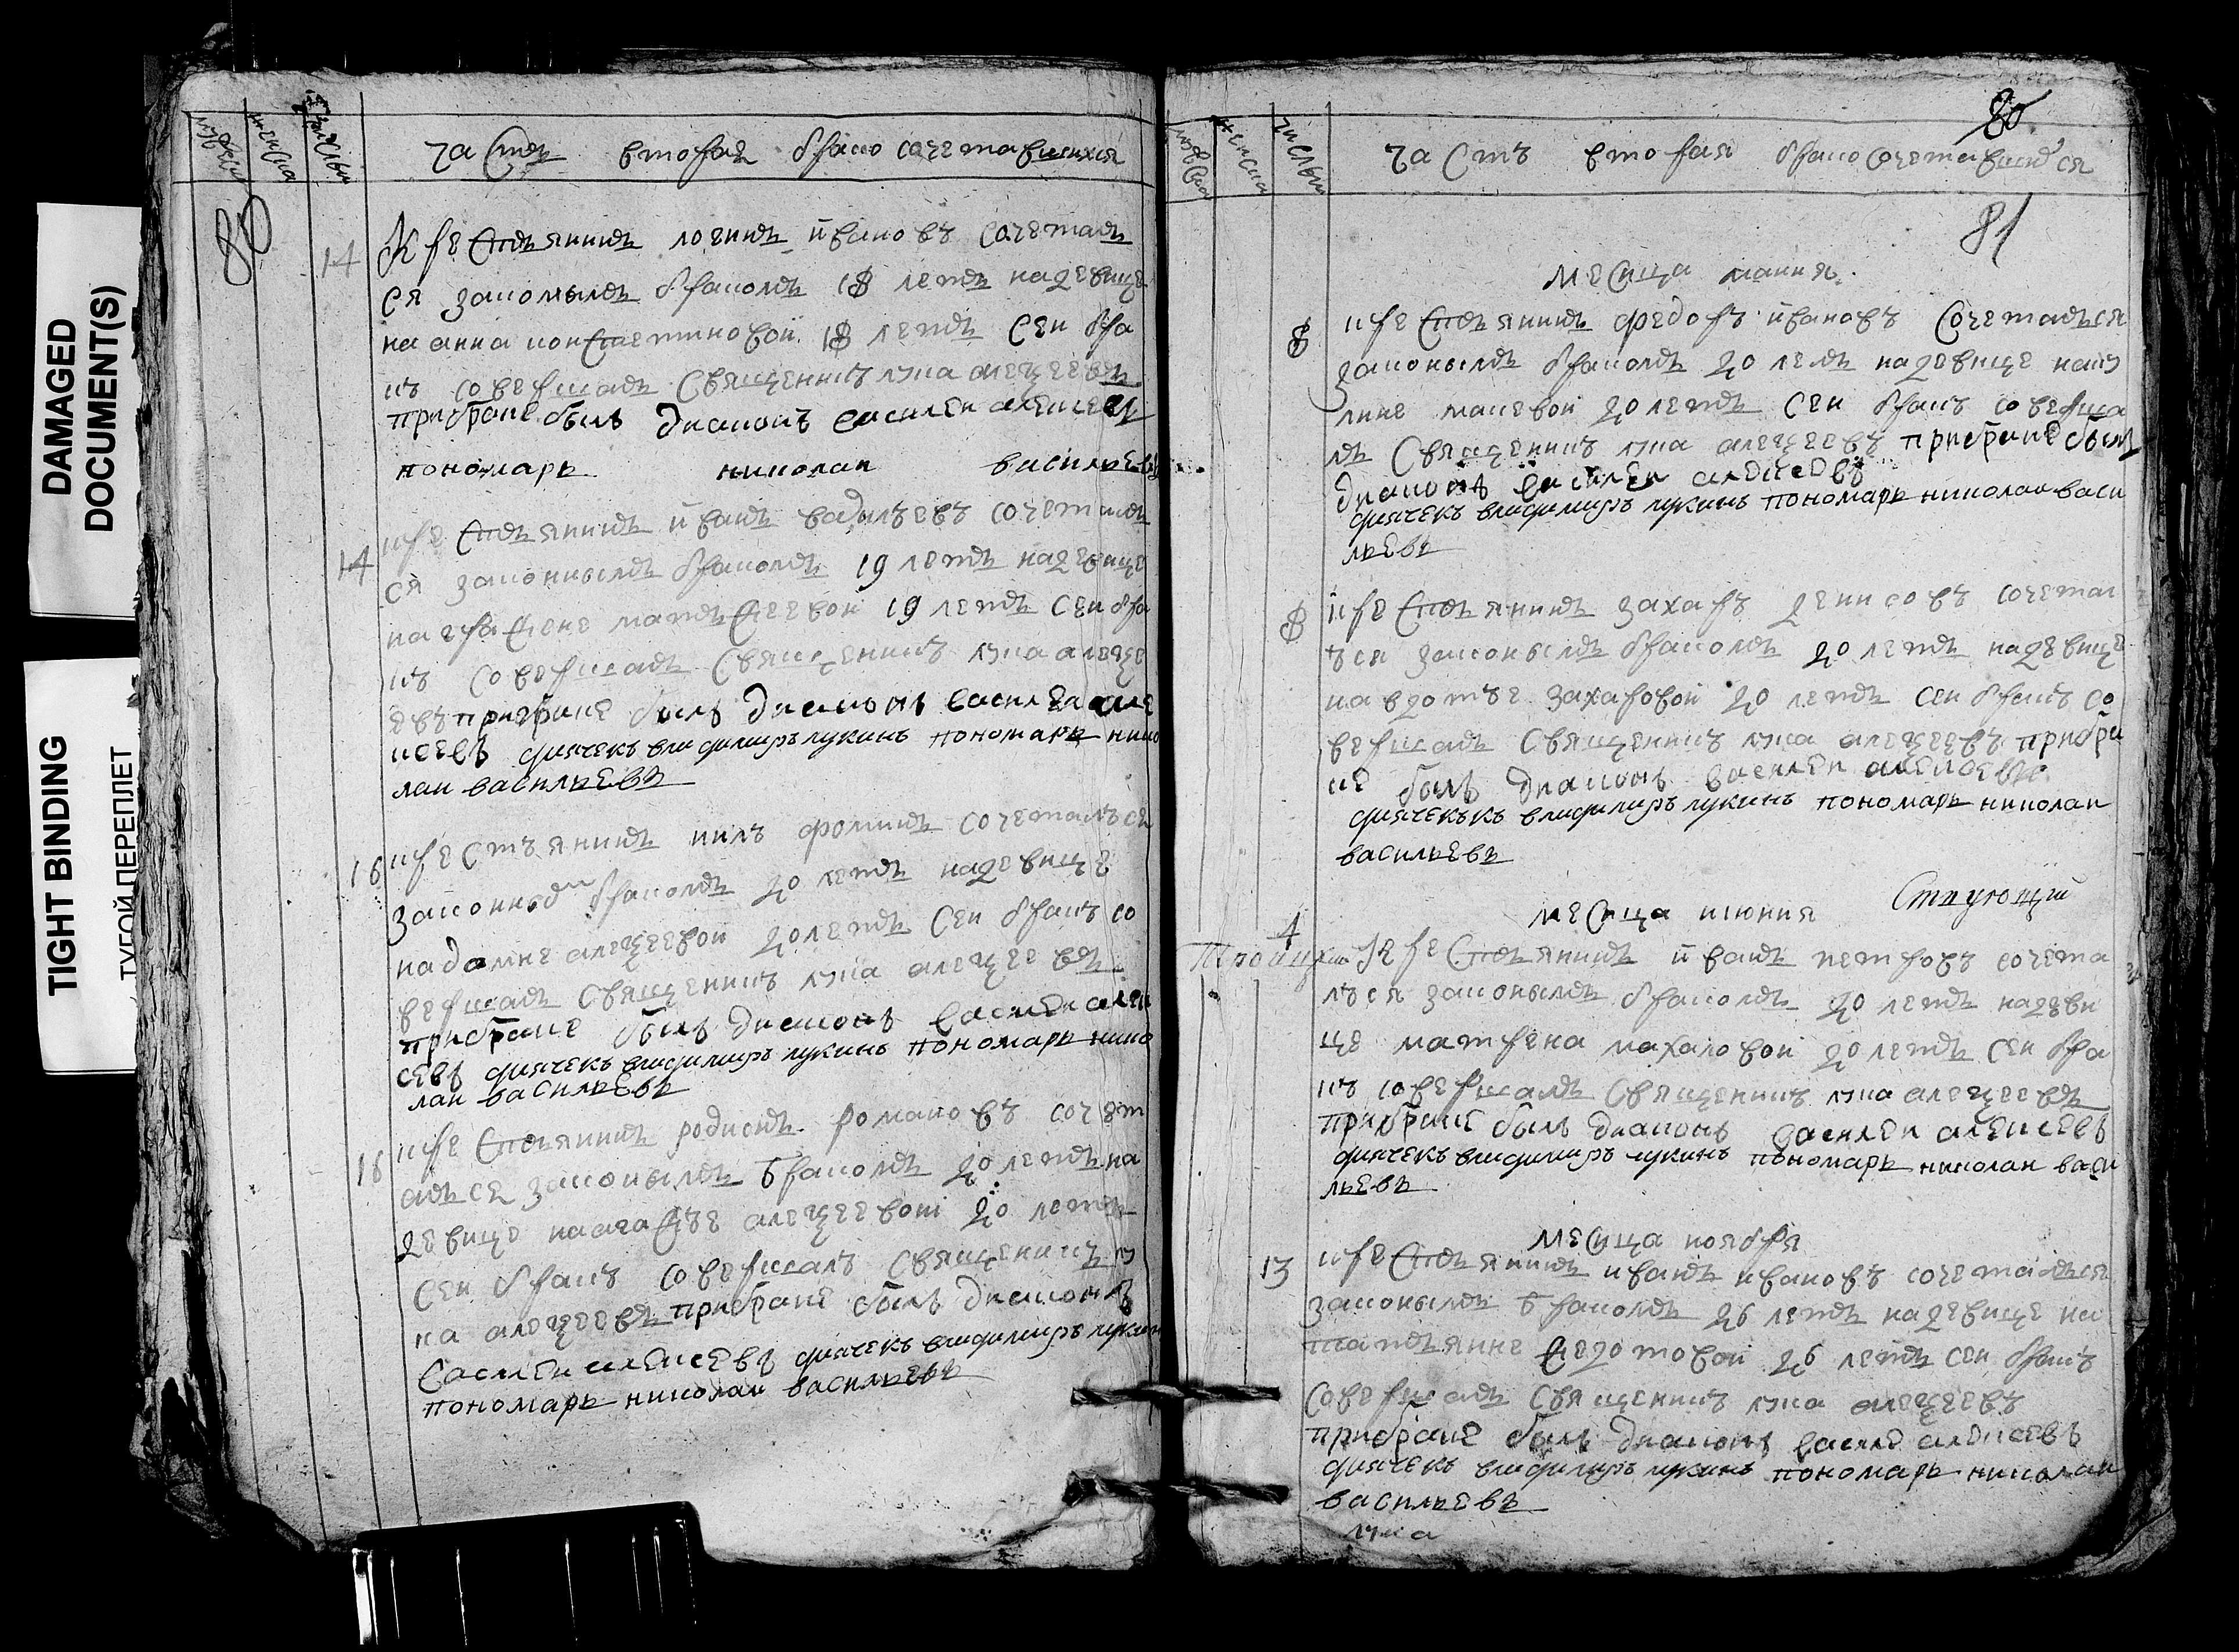 DAMAGED
DOCUMENT(S)
TIGHT BINDING
ТУГОЙ ПЕРЕПЛЕТ
числы
часть вторая брако сочетавшихся
80
14
крестьянинъ логинъ ивановъ сочетал
ся законымъ бракомъ 18 летъ надевице
на анна констентиновой 18 летъ сеи бра
къ совершалъ священникъ лука алеѯеевъ
прибраке былъ диаконъ василеи алексеев
пономарь николаи васильевъ
14
крестьянинъ иванъ савельевъ сочетал
ся законнымъ бракомъ 19 летъ надевице
на еѳраѳене матѳеевой 19 летъ сеи бра
къ совершалъ священникъ лука алеѯе
евъ прибраке былъ диаконъ василеи але
ксеевъ дьячекъ владимиръ лукинъ пономарь нико
лаи васильевъ
16
крестъянинъ нилъ фоминъ сочеталъся
законным бракомъ 20 летъ надевице
на домне алеѯеевой 20 летъ сеи бракъ со
вершалъ священникъ лука алеѯеевъ
прибраке былъ диаконъ василеи алек
сеевъ дьячекъ владимиръ лукинъ пономарь нико
лаи васильевъ
16
крестьянинъ родионъ романовъ сочет
алъся законымъ бракомъ 20 летъ на
девице на агаѳье алеѯеевои 20 летъ
сеи бракъ совершалъ священикъ лу
ка алеѯеевъ прибраке былъ диаконъ
василеи алексеевъ дьячекъ владимиръ лукин
пономарь николаи васильевъ
80
числы
часть вторая бракосочетавшихся
81
месяца маиия
8
крестьянинъ федоръ ивановъ сочеталъся
законымъ бракомъ 20 летъ надевице наку
лине макевой 20 летъ сеи бракъ соверша
лъ священникъ лука алеѯеевъ прибраке был
диаконъ василеи алексеевъ
дьячекъ владимиръ лукинъ пономарь николаи васи
льевъ
8
крестьянинъ захаръ денисовъ сочетал
ъся законымъ бракомъ 20 летъ надевице
на вдотъе захаровой 20 летъ сеи бракъ со
вершалъ священникъ лука алеѯеевъ прибра
ке былъ диаконъ василеи алексеевъ
дьячекъкъ владимиръ лукинъ пономарь николаи
васильевъ
месяца июния
4
крестьянинъ иванъ петровъ сочета
лъся законымъ бракомъ 20 летъ надеви
це матрена махаловой 20 летъ сеи бра
къ совершалъ священникъ лука алеѯеевъ
прибраке былъ диаконъ василеи алексеевъ
дьячекъ владимиръ лукинъ пономарь николаи васи
льевъ
месяца ноября
13
крестьянинъ иванъ ивановъ сочеталъся
законымъ бракомъ 26 летъ надевице на
татьянне ѳедотовои 26 летъ сеи бракъ
совершалъ священникъ лука алеѯеевъ
прибраке былъ диаконъ василе алексеевъ
дьячекъ владимиръ лукинъ пономарь николаи
васильевъ
лука